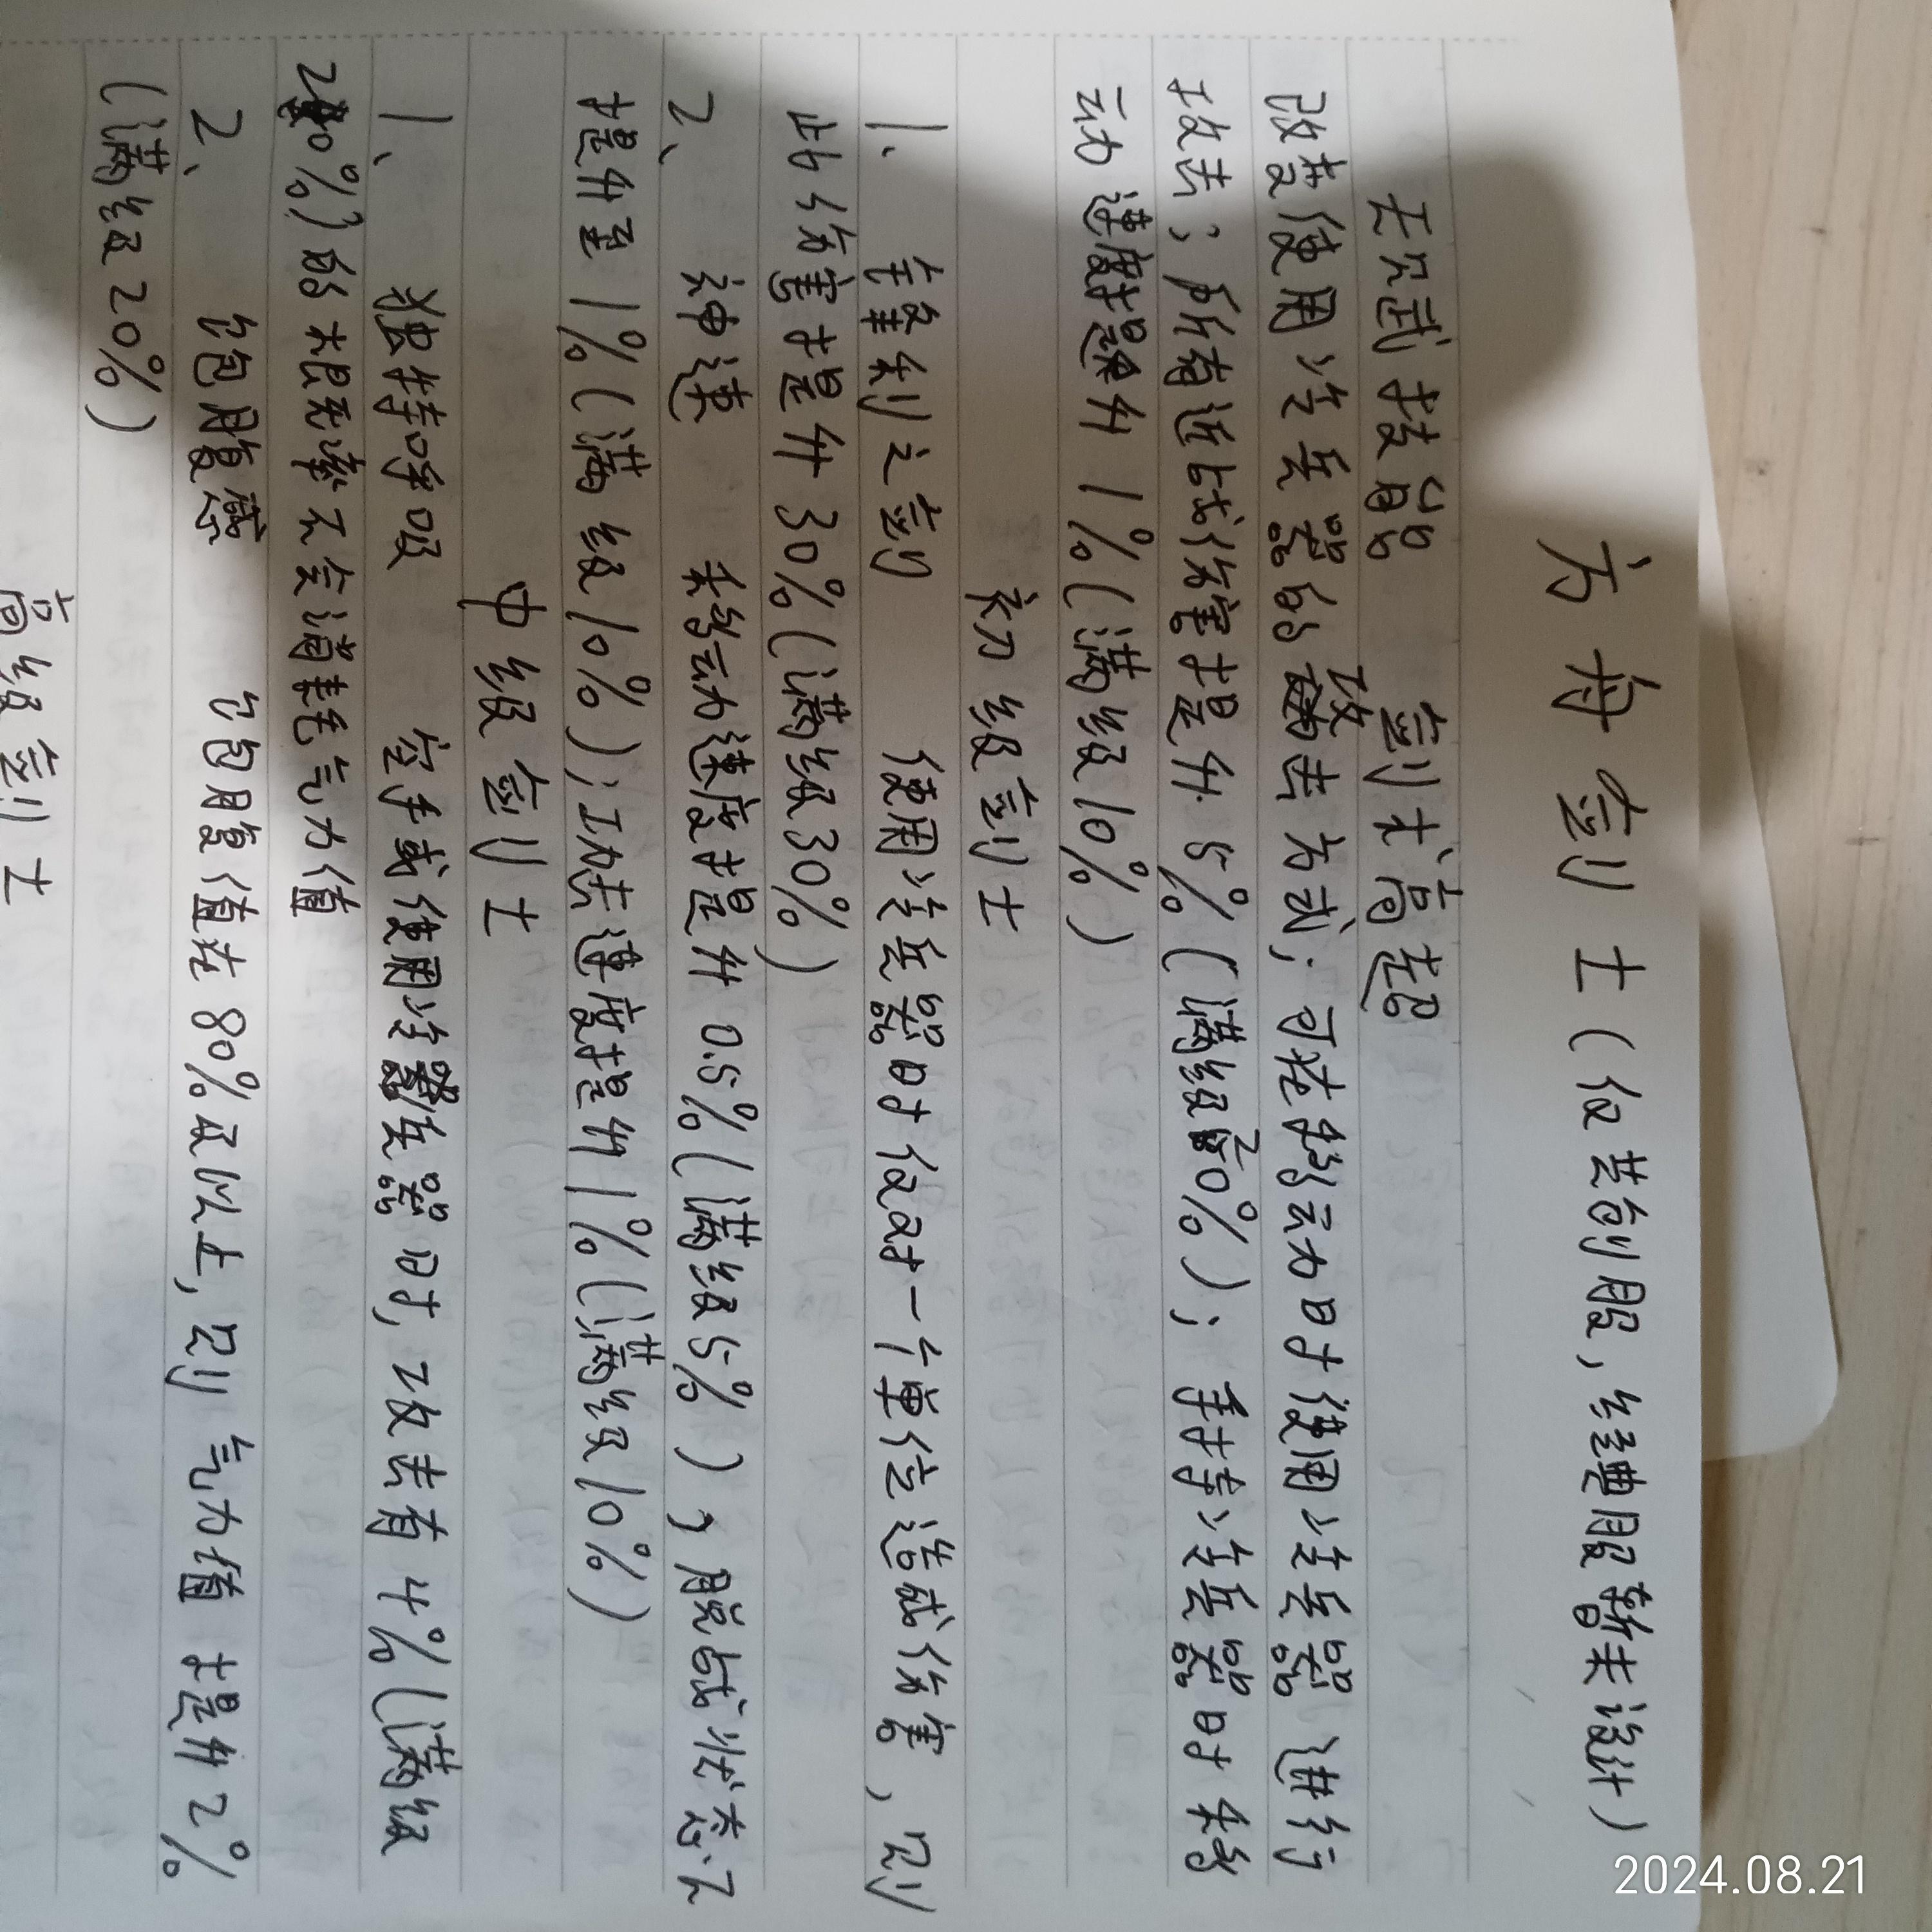 方舟剑士(仅芸刽服,经典服暂未设计)
天罚武技能 剑术高超
改变使用冷兵器的攻击方式;可在移动时使用冷兵器进行
攻击;所有近战伤害提升5%(满级20%);手持冷兵器时移
动速度提升1%(满级10%)
初级剑士
1、锋利之剑 使用冷兵器时仅对一个单位造成伤害,则
此伤害提升30%(满级30%)
2、神速 移动速度提升0.5%(满级5%),脱战状态下
提升至1%(满级10%);攻击速度提升1%(满级10%)
中级剑士
1、独特呼吸 空手或使用冷兵器时,攻击有4%(满级
20%)的概率不会消耗气力值
2、饱腹感 饱腹值在80%及以上,则气力值提升2%
(满级20%)
高级剑士
2024.08.21